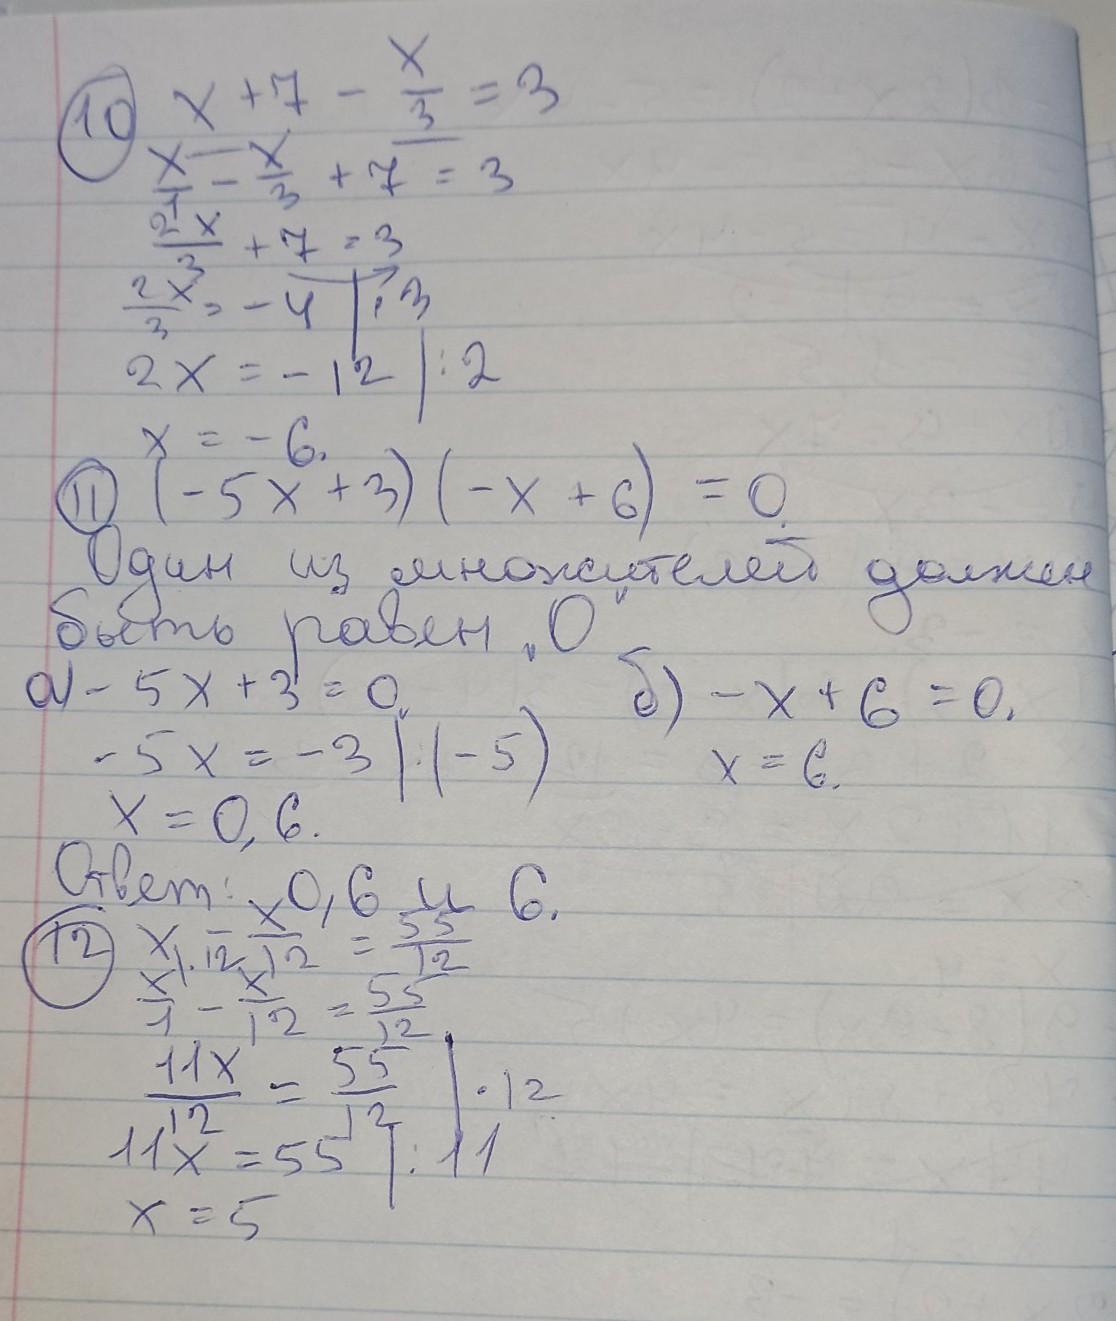 10 x + 7 - x/3 = 3
x/1 - x/3 + 7 = 3
2x/3 + 7 = 3
2x/3 = -4 | · 3
2x = -12 | : 2
x = -6.
11 (-5x + 3)(-x + 6) = 0.
Один из множителей должен
быть равен „0“
а) -5x + 3 = 0. б) -x + 6 = 0.
-5x = -3 | : (-5) x = 6.
x = 0,6.
Ответ: 0,6 и 6.
12 x - x/12 = 55/12
x/1 - x/12 = 55/12
11x/12 = 55/12 | · 12
11x = 55 | : 11
x = 5